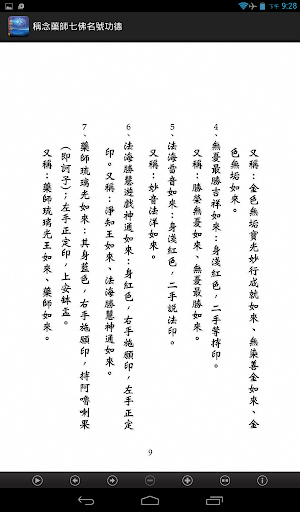 下午 9:28
稱念藥師七佛名號功德
又稱：金色無垢寶光妙行成就如來、無染善金如來、金
色無垢如來。
4、無憂最勝吉祥如來：身淺紅色，二手等持印。
又稱：勝榮無憂如來、無憂最勝如來。
5、法海雷音如來：身淺紅色，二手說法印。
又稱：妙音法洋如來。
6、法海勝慧遊戲神通如來：身紅色，右手施願印，左手正定
印。又稱：淨知王如來、法海勝慧神通如來。
7、藥師琉璃光如來：其身藍色，右手施願印，持阿嚕喇果
（即訶子）；左手正定印，上安缽盂。
又稱：藥師琉璃光王如來、藥師如來。
9